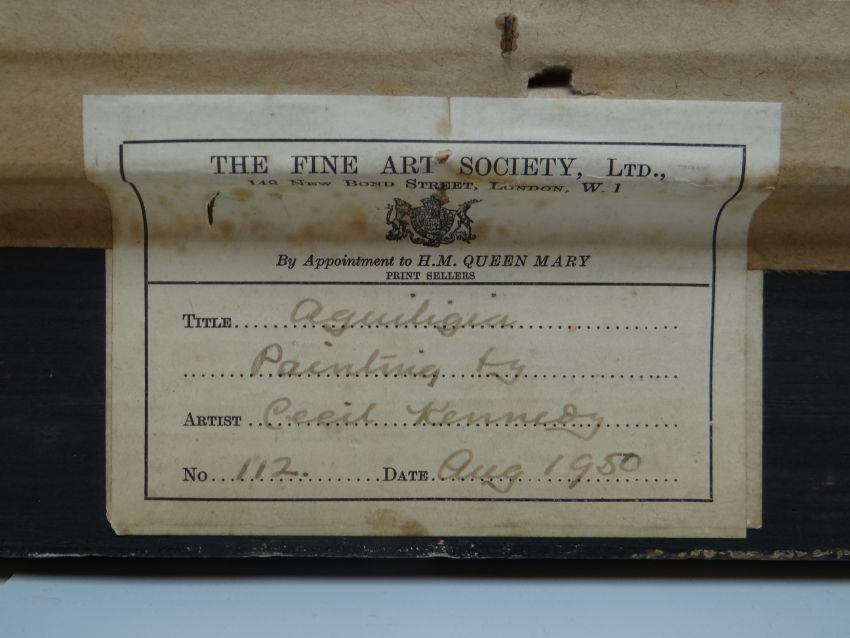 THE FINE ART SOCIETY, LTD.,
148 NEW BOND STREET, LONDON, W. 1
By Appointment to H.M. QUEEN MARY
PRINT SELLERS
TITLE Aquiligia
Painting by
ARTIST Cecil Kennedy
NO 112. DATE Aug 1950